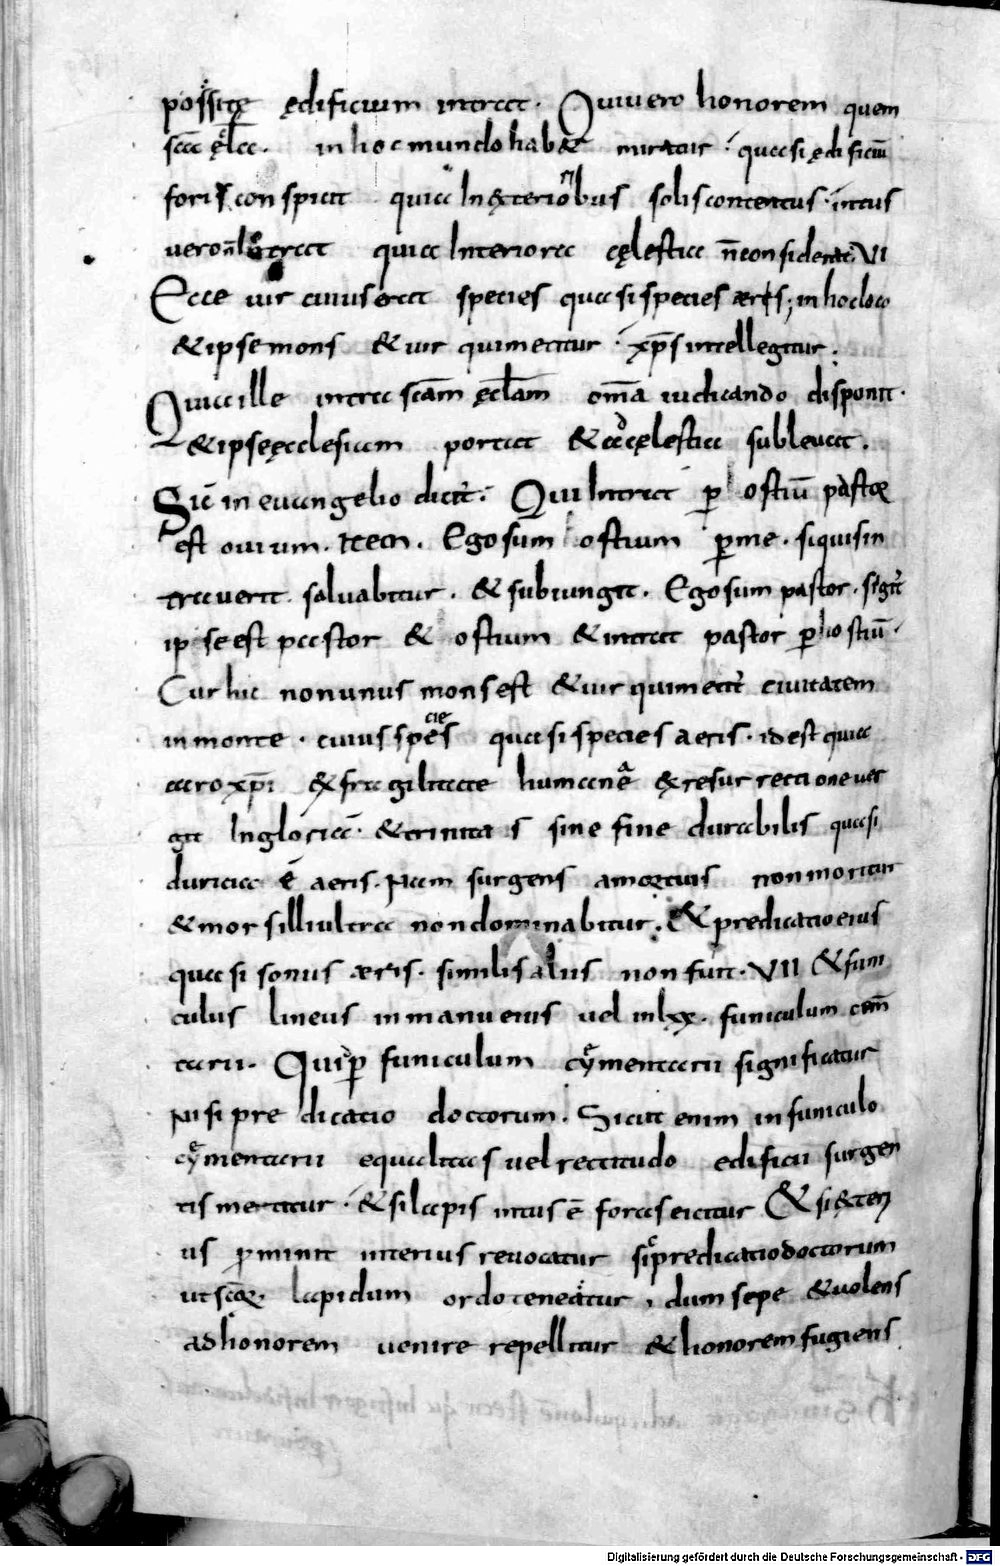 possitę ędificium intrat. Qui uero honorem quem
sc̄a ęl̄a. in hoc mundo hab& miratur. quasi ędificiū
foris conspicit quia In exterioribus solis contentus. intus
uero n̄ Intrat quia Interiora cęlestia n̄ considerat. VI
Ecce uir cuius erat species quasi species aeris; in hoc loco
& ipse mons & uir qui metitur. xp̄s intellegitur.
Quia ille intra sc̄am ęcl̄am om̄a iudicando disponit.
& ipse ęcclesiam portat & ad cęlestia subleuat.
Sic in euangelio dicit̄. Qui Intrat p ostiū pastor
est ouium. Item. Ego sum ostium p me. si quis in
trauerit saluabitur. & subiungit. Ego sum pastor. sigit̄
ipse est pastor & ostium & intrat pastor p hostiū.
Cur hic non unus mons est & uir qui metit̄ ciuitatem
in monte. cuius species quasi species aeris. id est quia
caro xp̄i ex fragilitate humana & resurrectione uer
git In gloria. & trinitas sine fine durabilis quasi
duricia ē aeris. Nam surgens a mortuis non moritur
& mors illi ultra non dominabitur. & predicatio eius
quasi sonus aeris. similis alius non fuit. VII & funi
culus lineus in manu eius uel in lxx. funiculum cem̄
tarii. Quid p funiculum cymentarii significatur
Nisi predicatio doctorum. Sicut enim in funiculo
cymentarii equalitas uel rectitudo edificii surgen
tis metitur. & si lapis intus ē foras eicitur & si exteri
us prominit interius reuocatur si predicatio doctorum
ut sc̄or lapidum ordo teneatur, dum sepe & uolens
ad honorem uenire repellitur & honorem fugiens